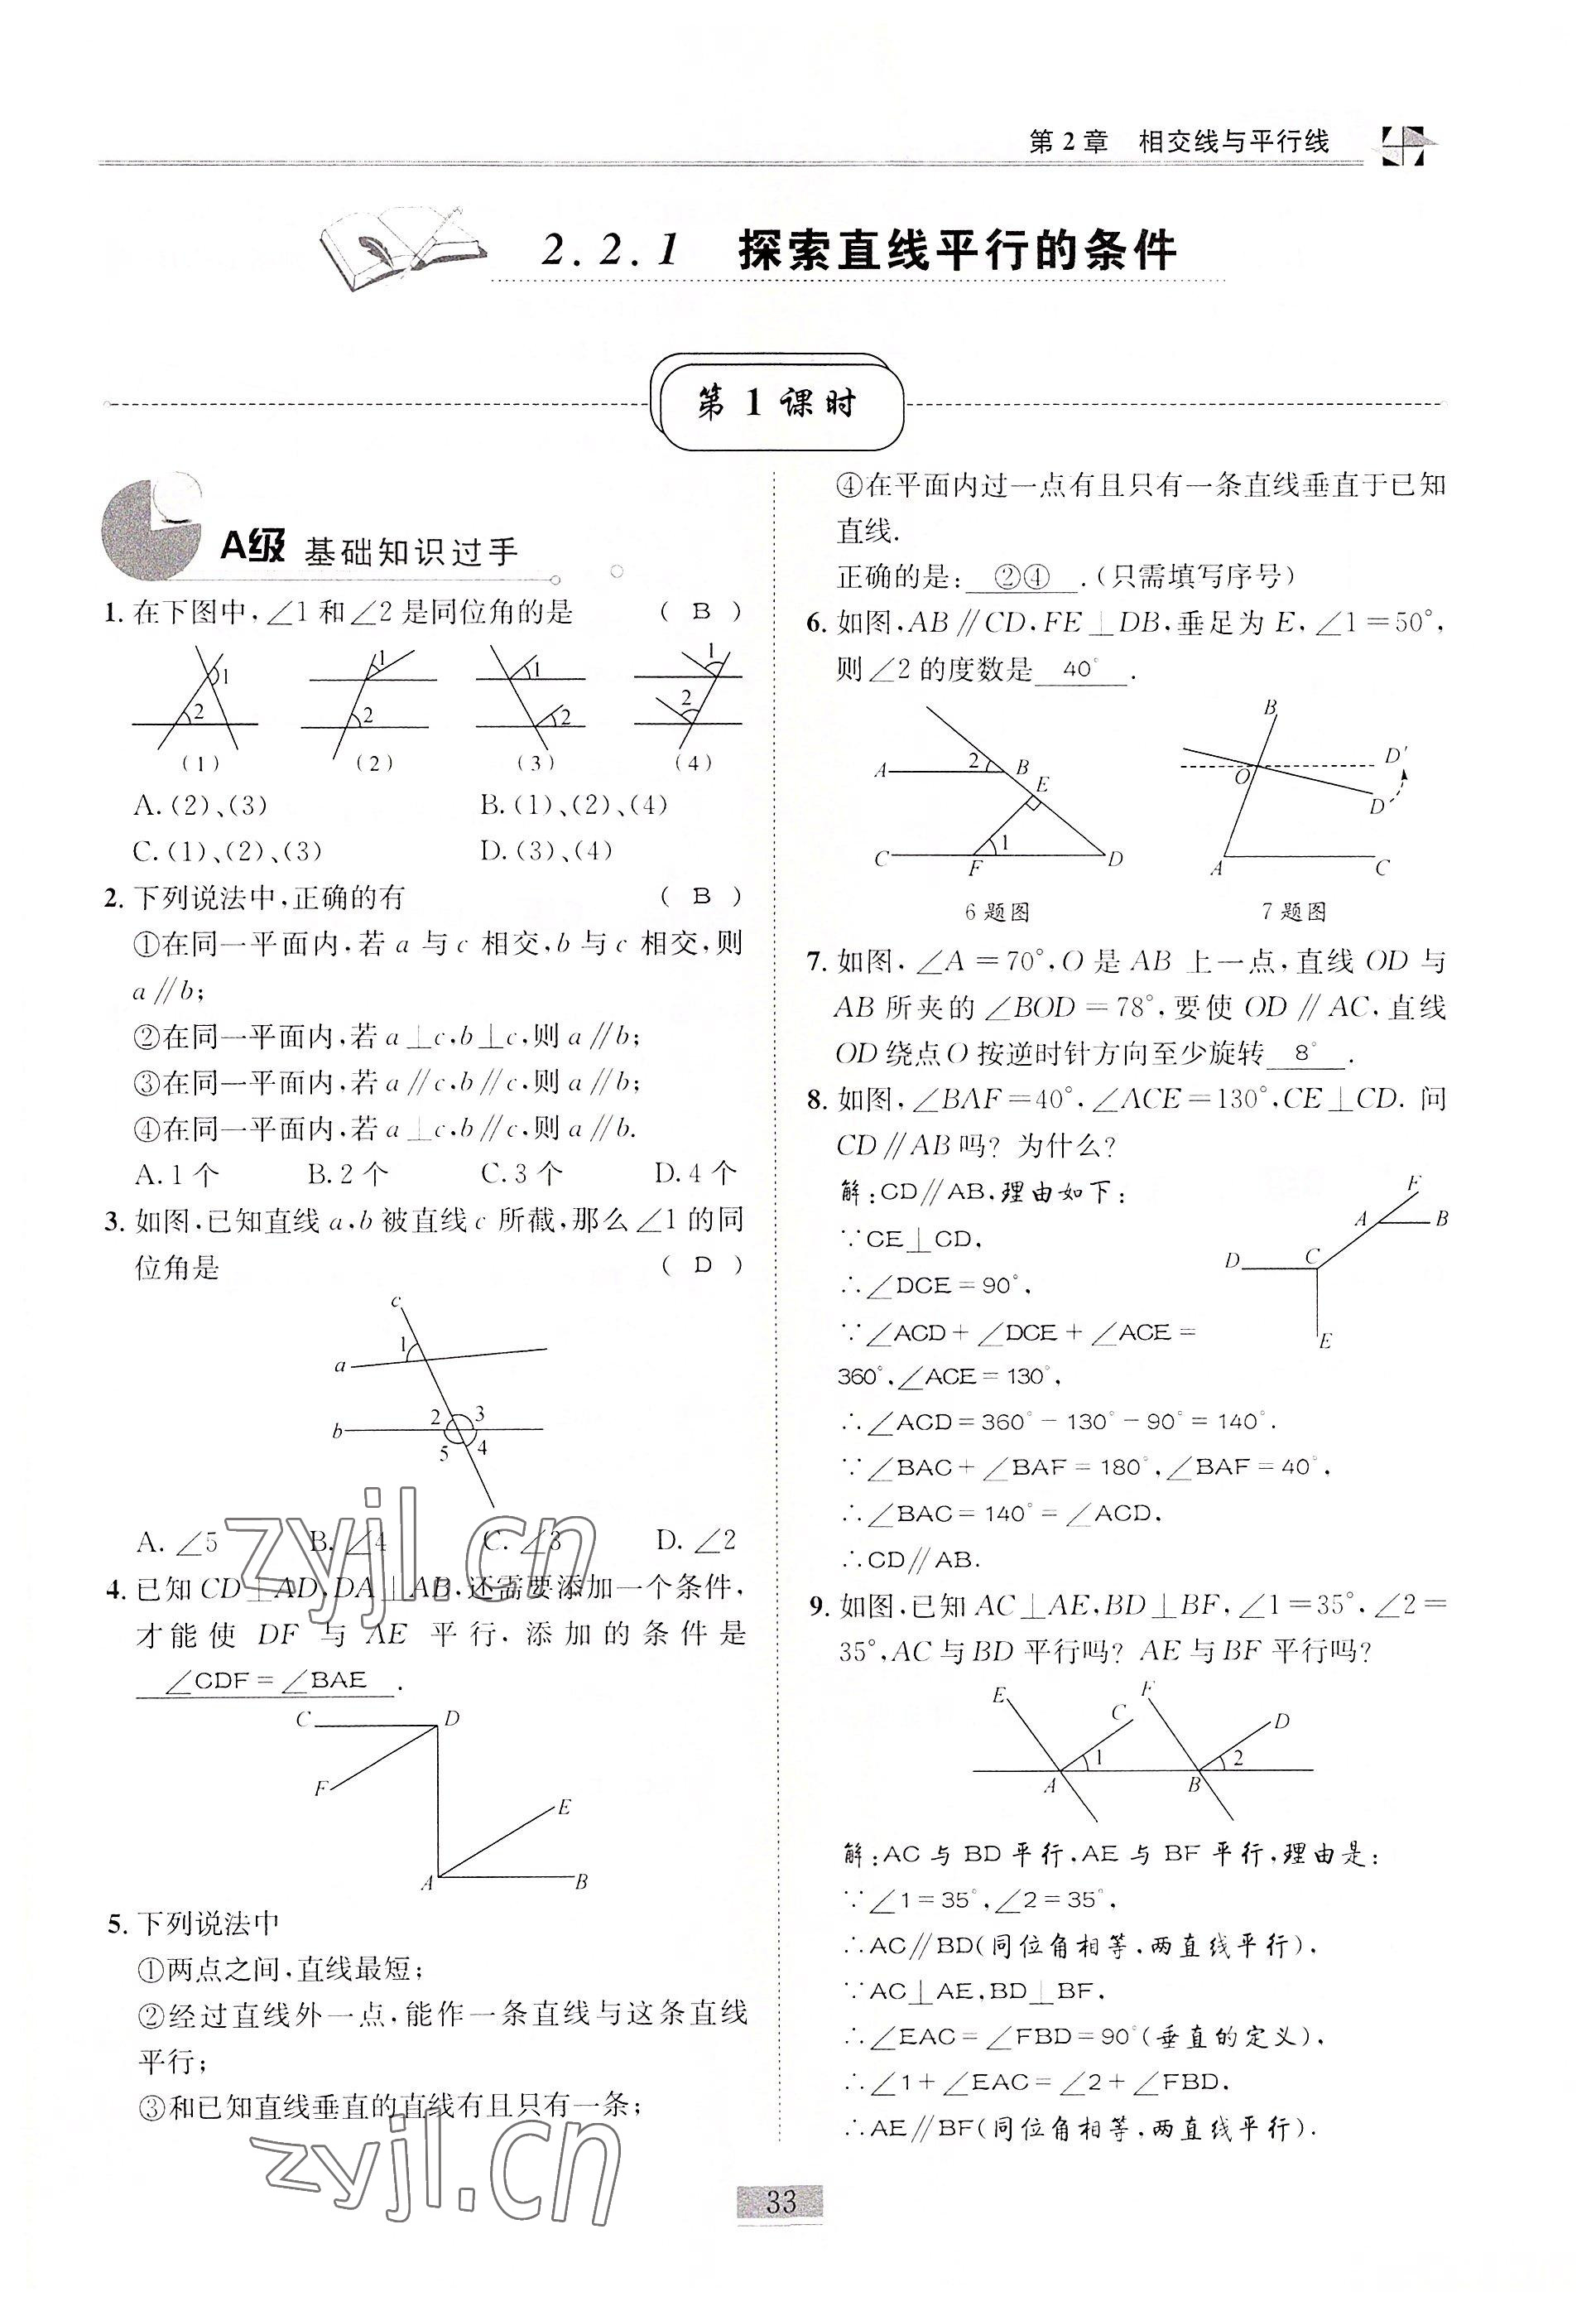 第2章 相交线与平行线
2.2.1 探索直线平行的条件
第1课时
A级 基础知识过手
1. 在下图中,∠1和∠2是同位角的是 ( B )
1 2 1 2 1 2 1 2
(1) (2) (3) (4)
A.(2)、(3) B.(1)、(2)、(4)
C.(1)、(2)、(3) D.(3)、(4)
2. 下列说法中,正确的有 ( B )
①在同一平面内,若a与c相交,b与c相交,则
a∥b;
②在同一平面内,若a⊥c,b⊥c,则a∥b;
③在同一平面内,若a∥c,b∥c,则a∥b;
④在同一平面内,若a⊥c,b∥c,则a∥b.
A.1个 B.2个 C.3个 D.4个
3. 如图,已知直线a,b被直线c所截,那么∠1的同
位角是 ( D )
c
1
a
2 3
b
5 4
A.∠5 B.∠4 C.∠3 D.∠2
4. 已知CD⊥AD,DA⊥AB,还需要添加一个条件,
才能使DF与AE平行.添加的条件是
∠CDF=∠BAE .
C D
F
E
A B
5. 下列说法中
①两点之间,直线最短;
②经过直线外一点,能作一条直线与这条直线
平行;
③和已知直线垂直的直线有且只有一条;
④在平面内过一点有且只有一条直线垂直于已知
直线.
正确的是: ②④ .(只需填写序号)
6. 如图,AB∥CD,FE⊥DB,垂足为E,∠1=50°,
则∠2的度数是 40° .
A 2 B E
C F 1 D
B
O D′
D
A C
6题图 7题图
7. 如图,∠A=70°,O是AB上一点,直线OD与
AB所夹的∠BOD=78°,要使OD∥AC,直线
OD绕点O按逆时针方向至少旋转 8° .
8. 如图,∠BAF=40°,∠ACE=130°,CE⊥CD.问
CD∥AB吗?为什么?
解:CD∥AB,理由如下:
∵CE⊥CD,
∴∠DCE=90°,
∵∠ACD+∠DCE+∠ACE=
360°,∠ACE=130°,
∴∠ACD=360°-130°-90°=140°.
∵∠BAC+∠BAF=180°,∠BAF=40°,
∴∠BAC=140°=∠ACD,
∴CD∥AB.
F
A B
D C
E
9. 如图,已知AC⊥AE,BD⊥BF,∠1=35°,∠2=
35°,AC与BD平行吗?AE与BF平行吗?
E F
C D
1 2
A B
解:AC与BD平行,AE与BF平行,理由是:
∵∠1=35°,∠2=35°,
∴AC∥BD(同位角相等,两直线平行).
∵AC⊥AE,BD⊥BF,
∴∠EAC=∠FBD=90°(垂直的定义),
∴∠1+∠EAC=∠2+∠FBD,
∴AE∥BF(同位角相等,两直线平行).
33
zyjl.cn
zyjl.cn